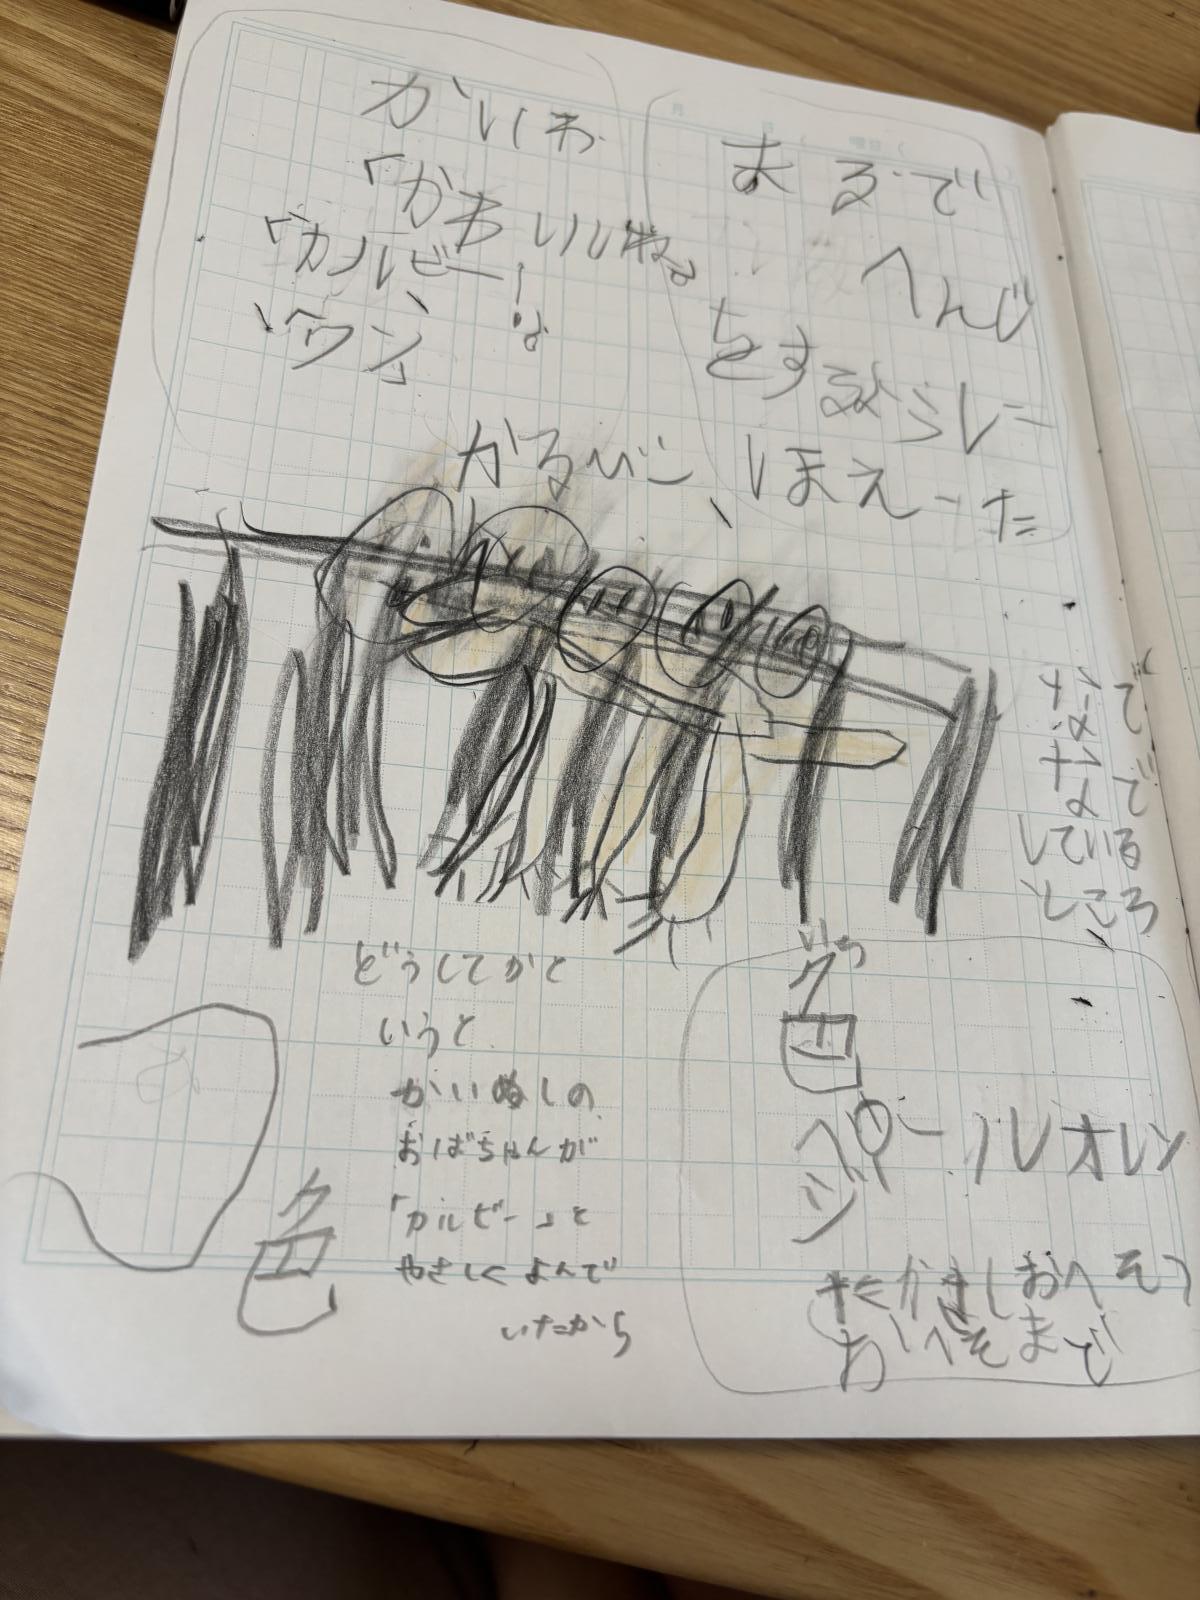 かいわ
「かわいいね」
「カルビー！」
「ワン」
まるで
へんじ
をするように
かるびー、ほえーた
なでなで
している
ところ
どうしてかと
いうと
かいぬしの
おばちゃんが
「カルビー」と
やさしくよんで
いたから
色
いろ
色
ペールオレン
ジ
おへそ
おへそまで